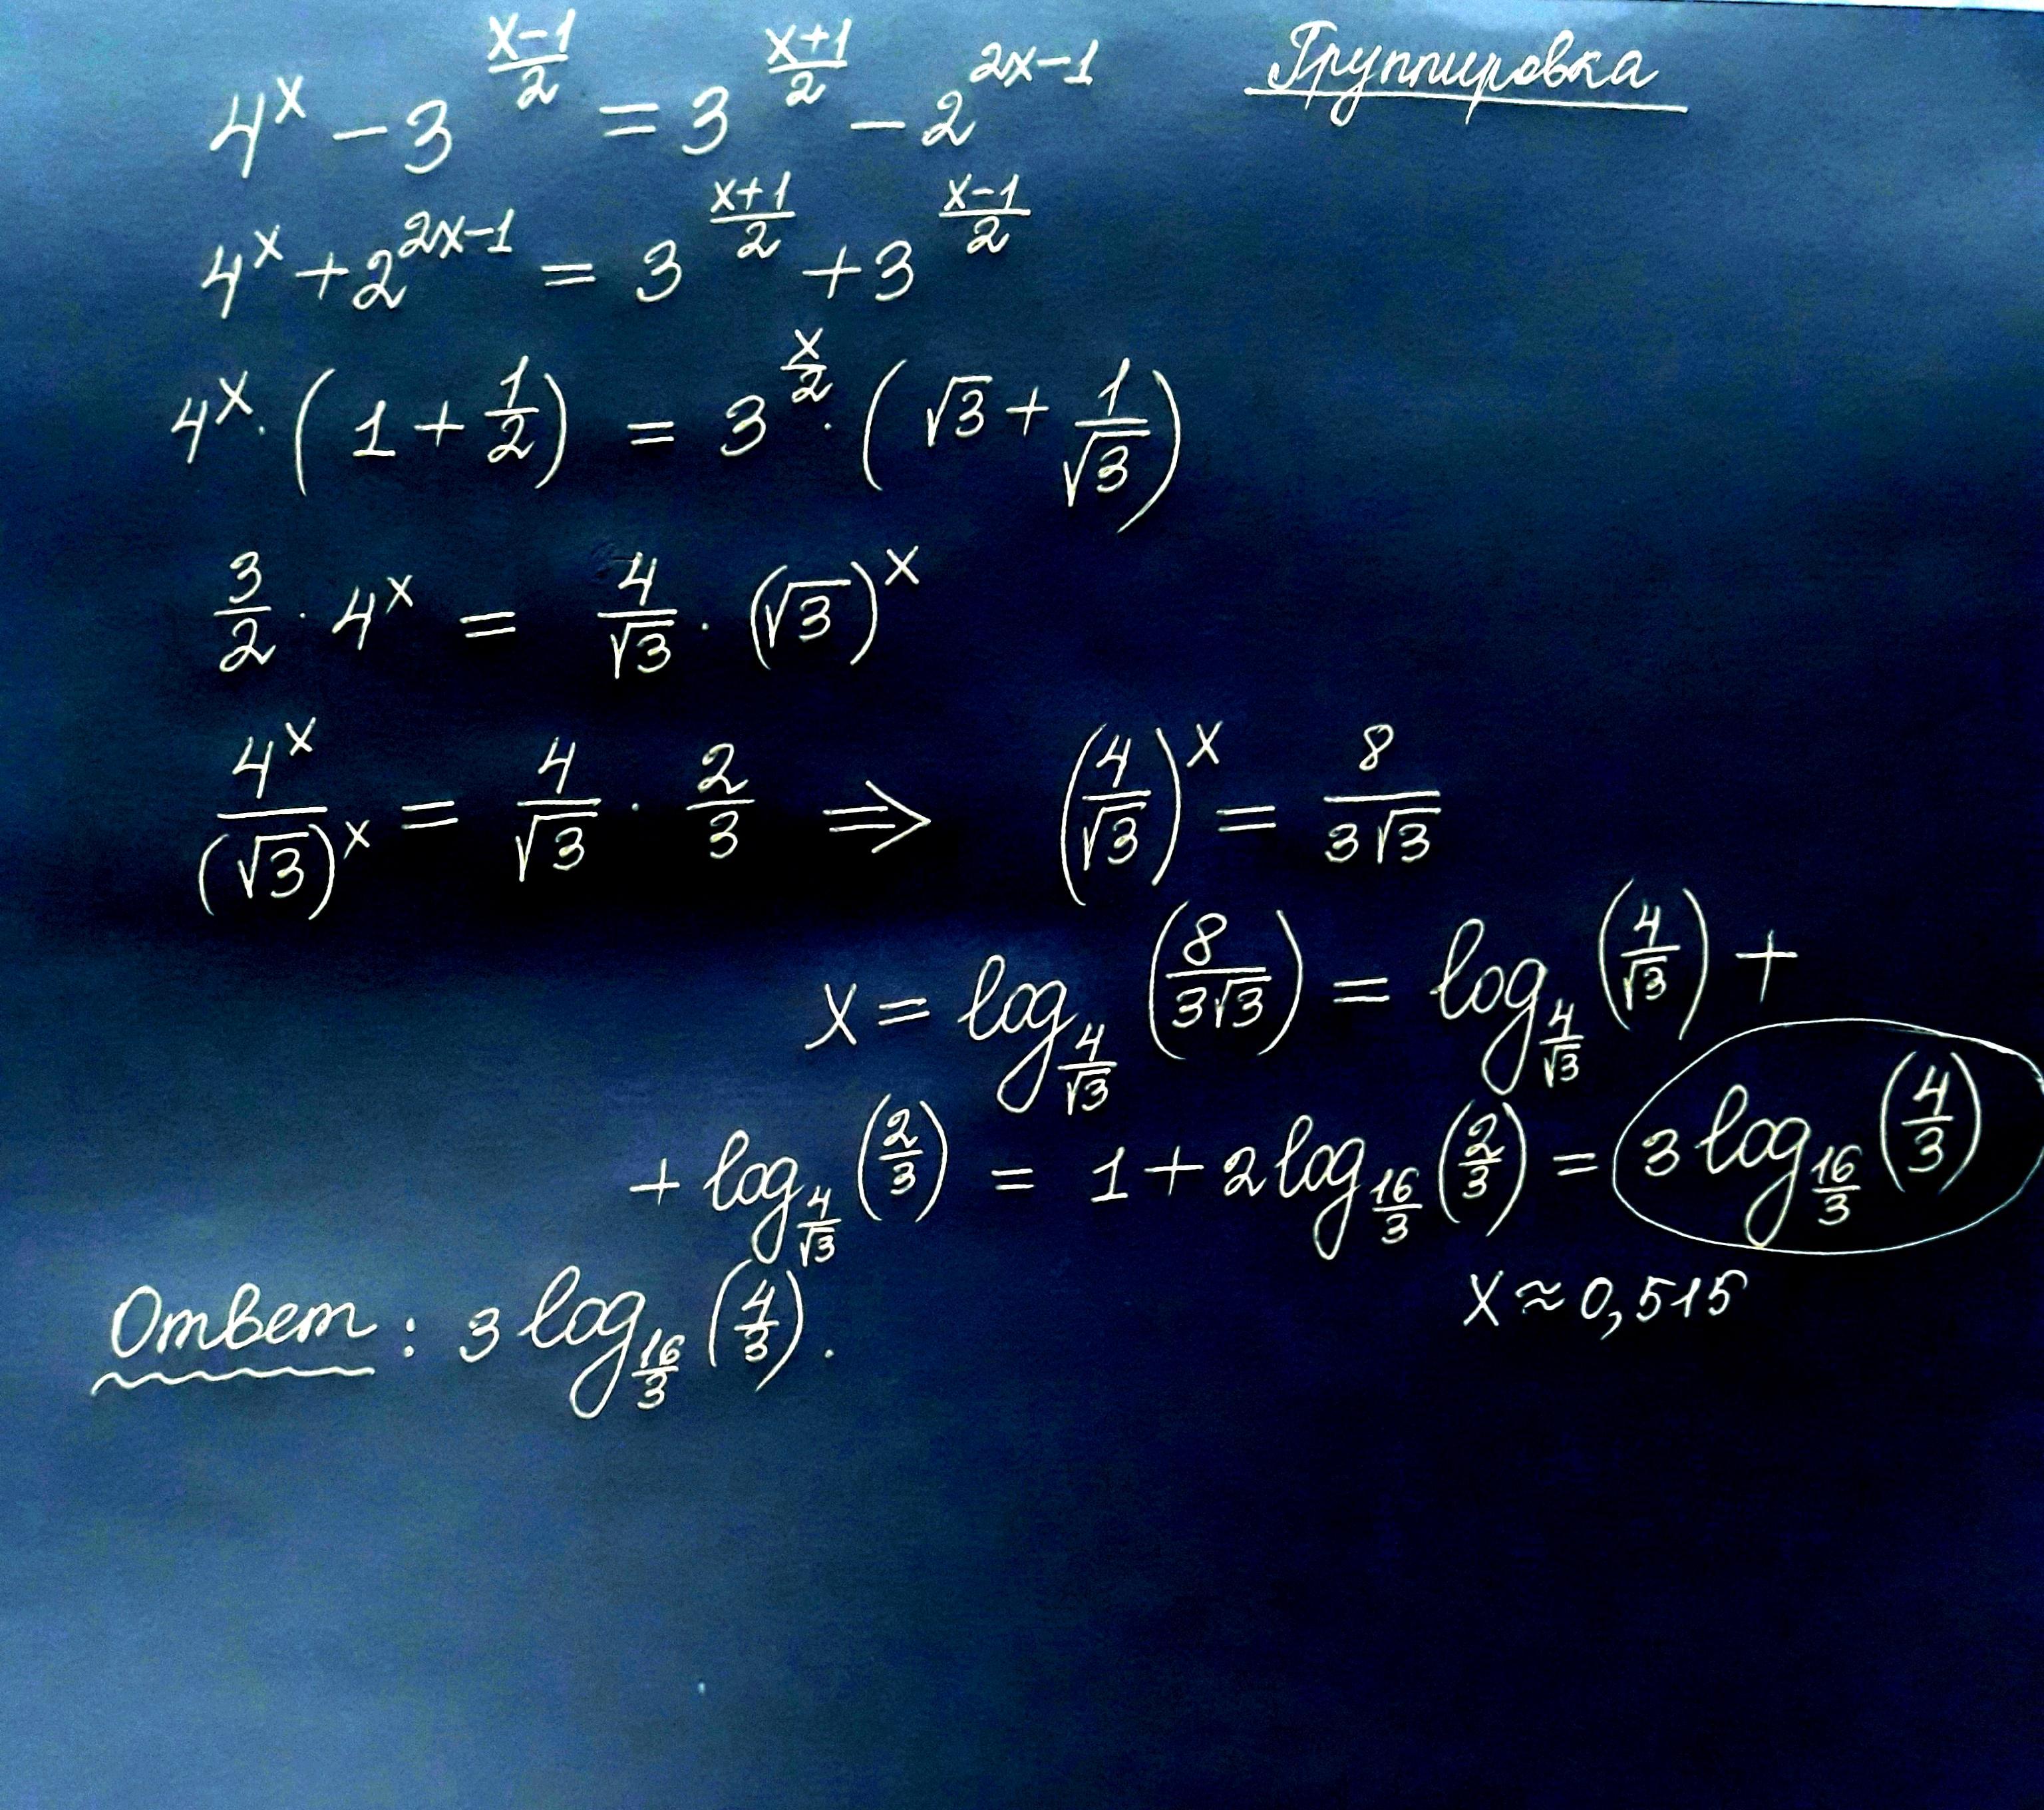 4^x − 3^((x−1)/2) = 3^((x+1)/2) − 2^(2x−1) Группировка
4^x + 2^(2x−1) = 3^((x+1)/2) + 3^((x−1)/2)
4^x · (1 + 1/2) = 3^(x/2) · (√3 + 1/√3)
3/2 · 4^x = 4/√3 · (√3)^x
4^x/(√3)^x = 4/√3 · 2/3 ⇒ (4/√3)^x = 8/(3√3)
x = log_(4/√3) (8/(3√3)) = log_(4/√3) (4/√3) +
+ log_(4/√3) (2/3) = 1 + 2 log_(16/3) (2/3) = 3 log_(16/3) (4/3)
x ≈ 0,515
Ответ: 3 log_(16/3) (4/3).